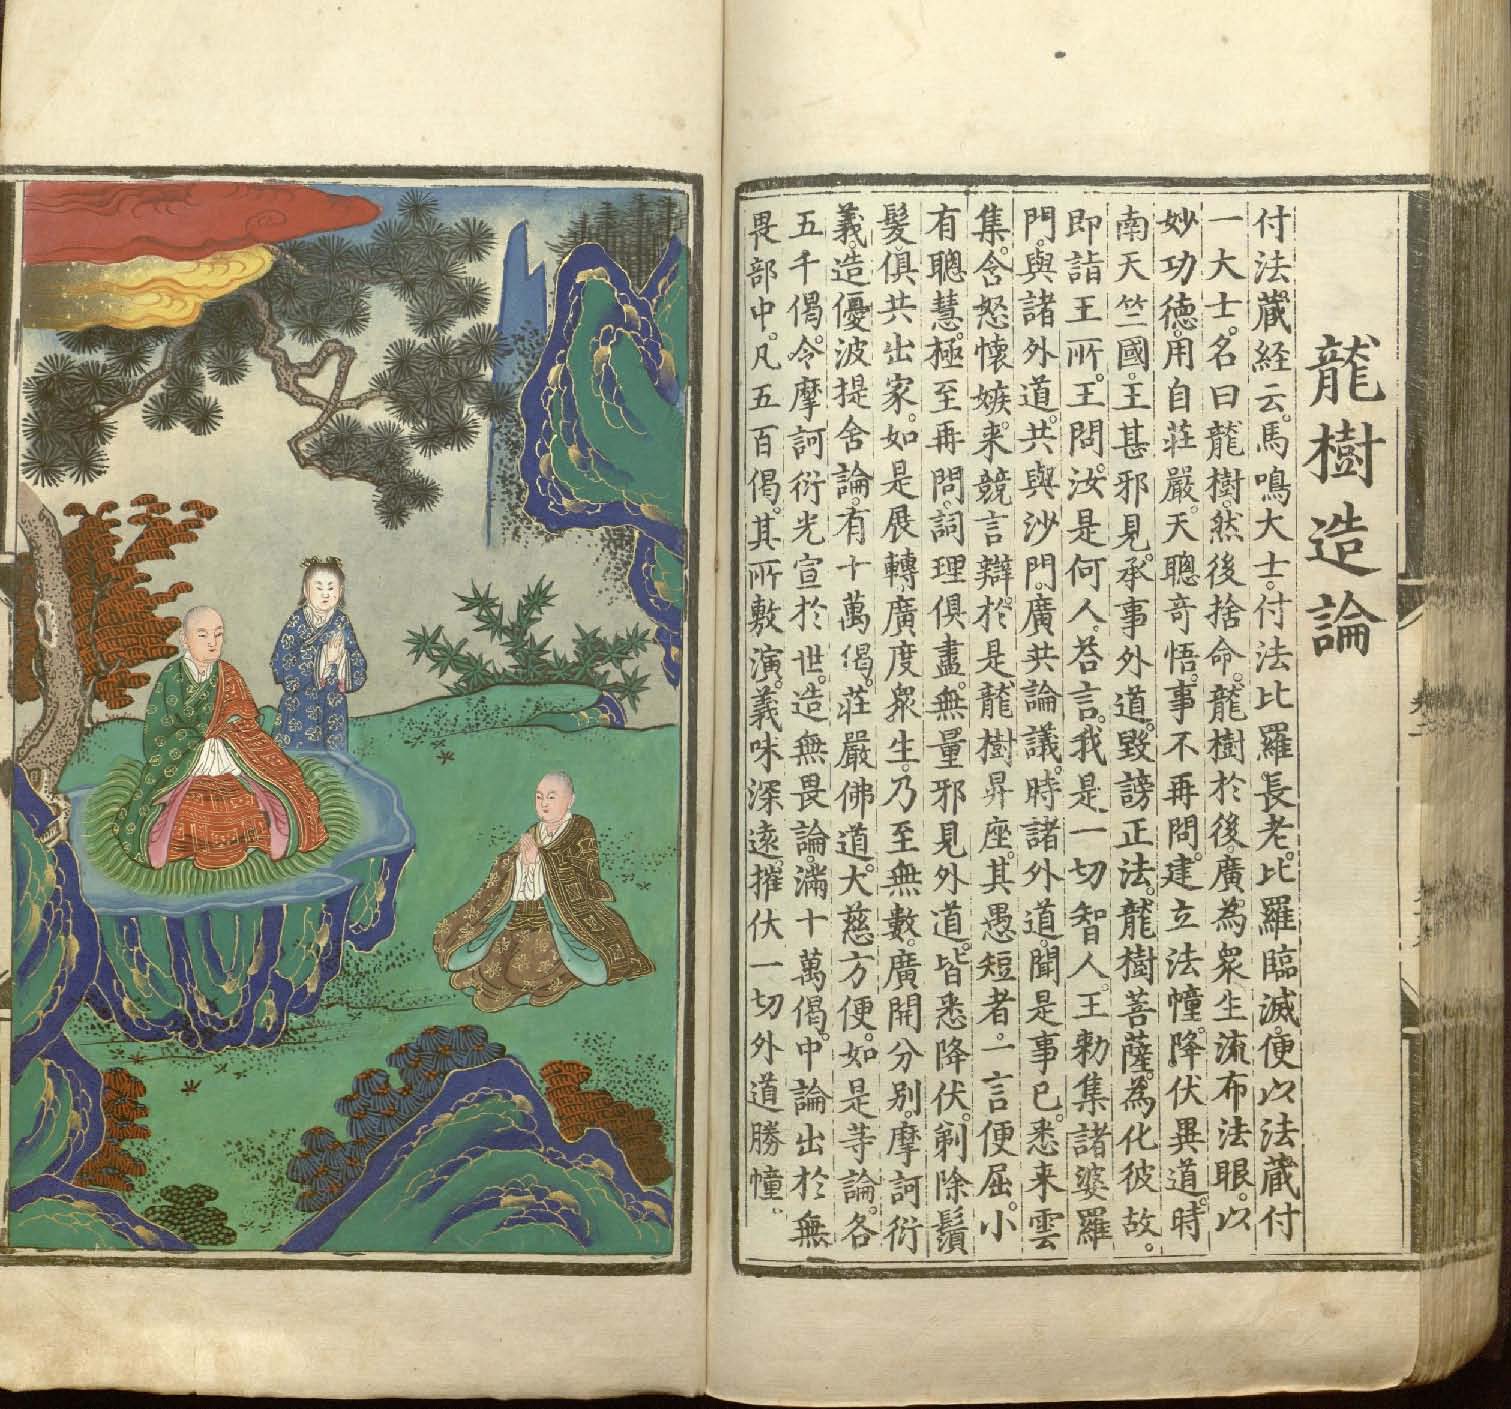 龍樹造論
付法蔵経云。馬鳴大士。付法比羅長老。比羅臨滅。便以法蔵付
一大士。名曰龍樹。然後捨命。龍樹於後。廣為眾生流布法眼。以
妙功德。用自莊嚴。天聰奇悟。事不再問。建立法幢。降伏異道。時
南天竺國。王甚邪見。承事外道。毀謗正法。龍樹菩薩。為化彼故。
即詣王所。王問。汝是何人。荅言。我是一切智人。王勅集諸婆羅
門。與諸外道。共與沙門。廣共論議。時諸外道。聞是事已。悉来雲
集。含怒懷嫉。来競言辯。於是龍樹昇座。其愚短者。一言便屈。小
有聰慧。極至再問。詞理俱盡。無量邪見外道。皆悉降伏。剃除鬚
髮。俱共出家。如是展轉。廣度眾生。乃至無數。廣開分別。摩訶衍
義。造優波提舍論。有十萬偈。莊嚴佛道。大慈方便。如是等論。各
五千偈。令摩訶衍光宣於世。造無畏論。滿十萬偈。中論出於無
畏部中。凡五百偈。其所敷演。義味深遠。摧伏一切外道勝幢。